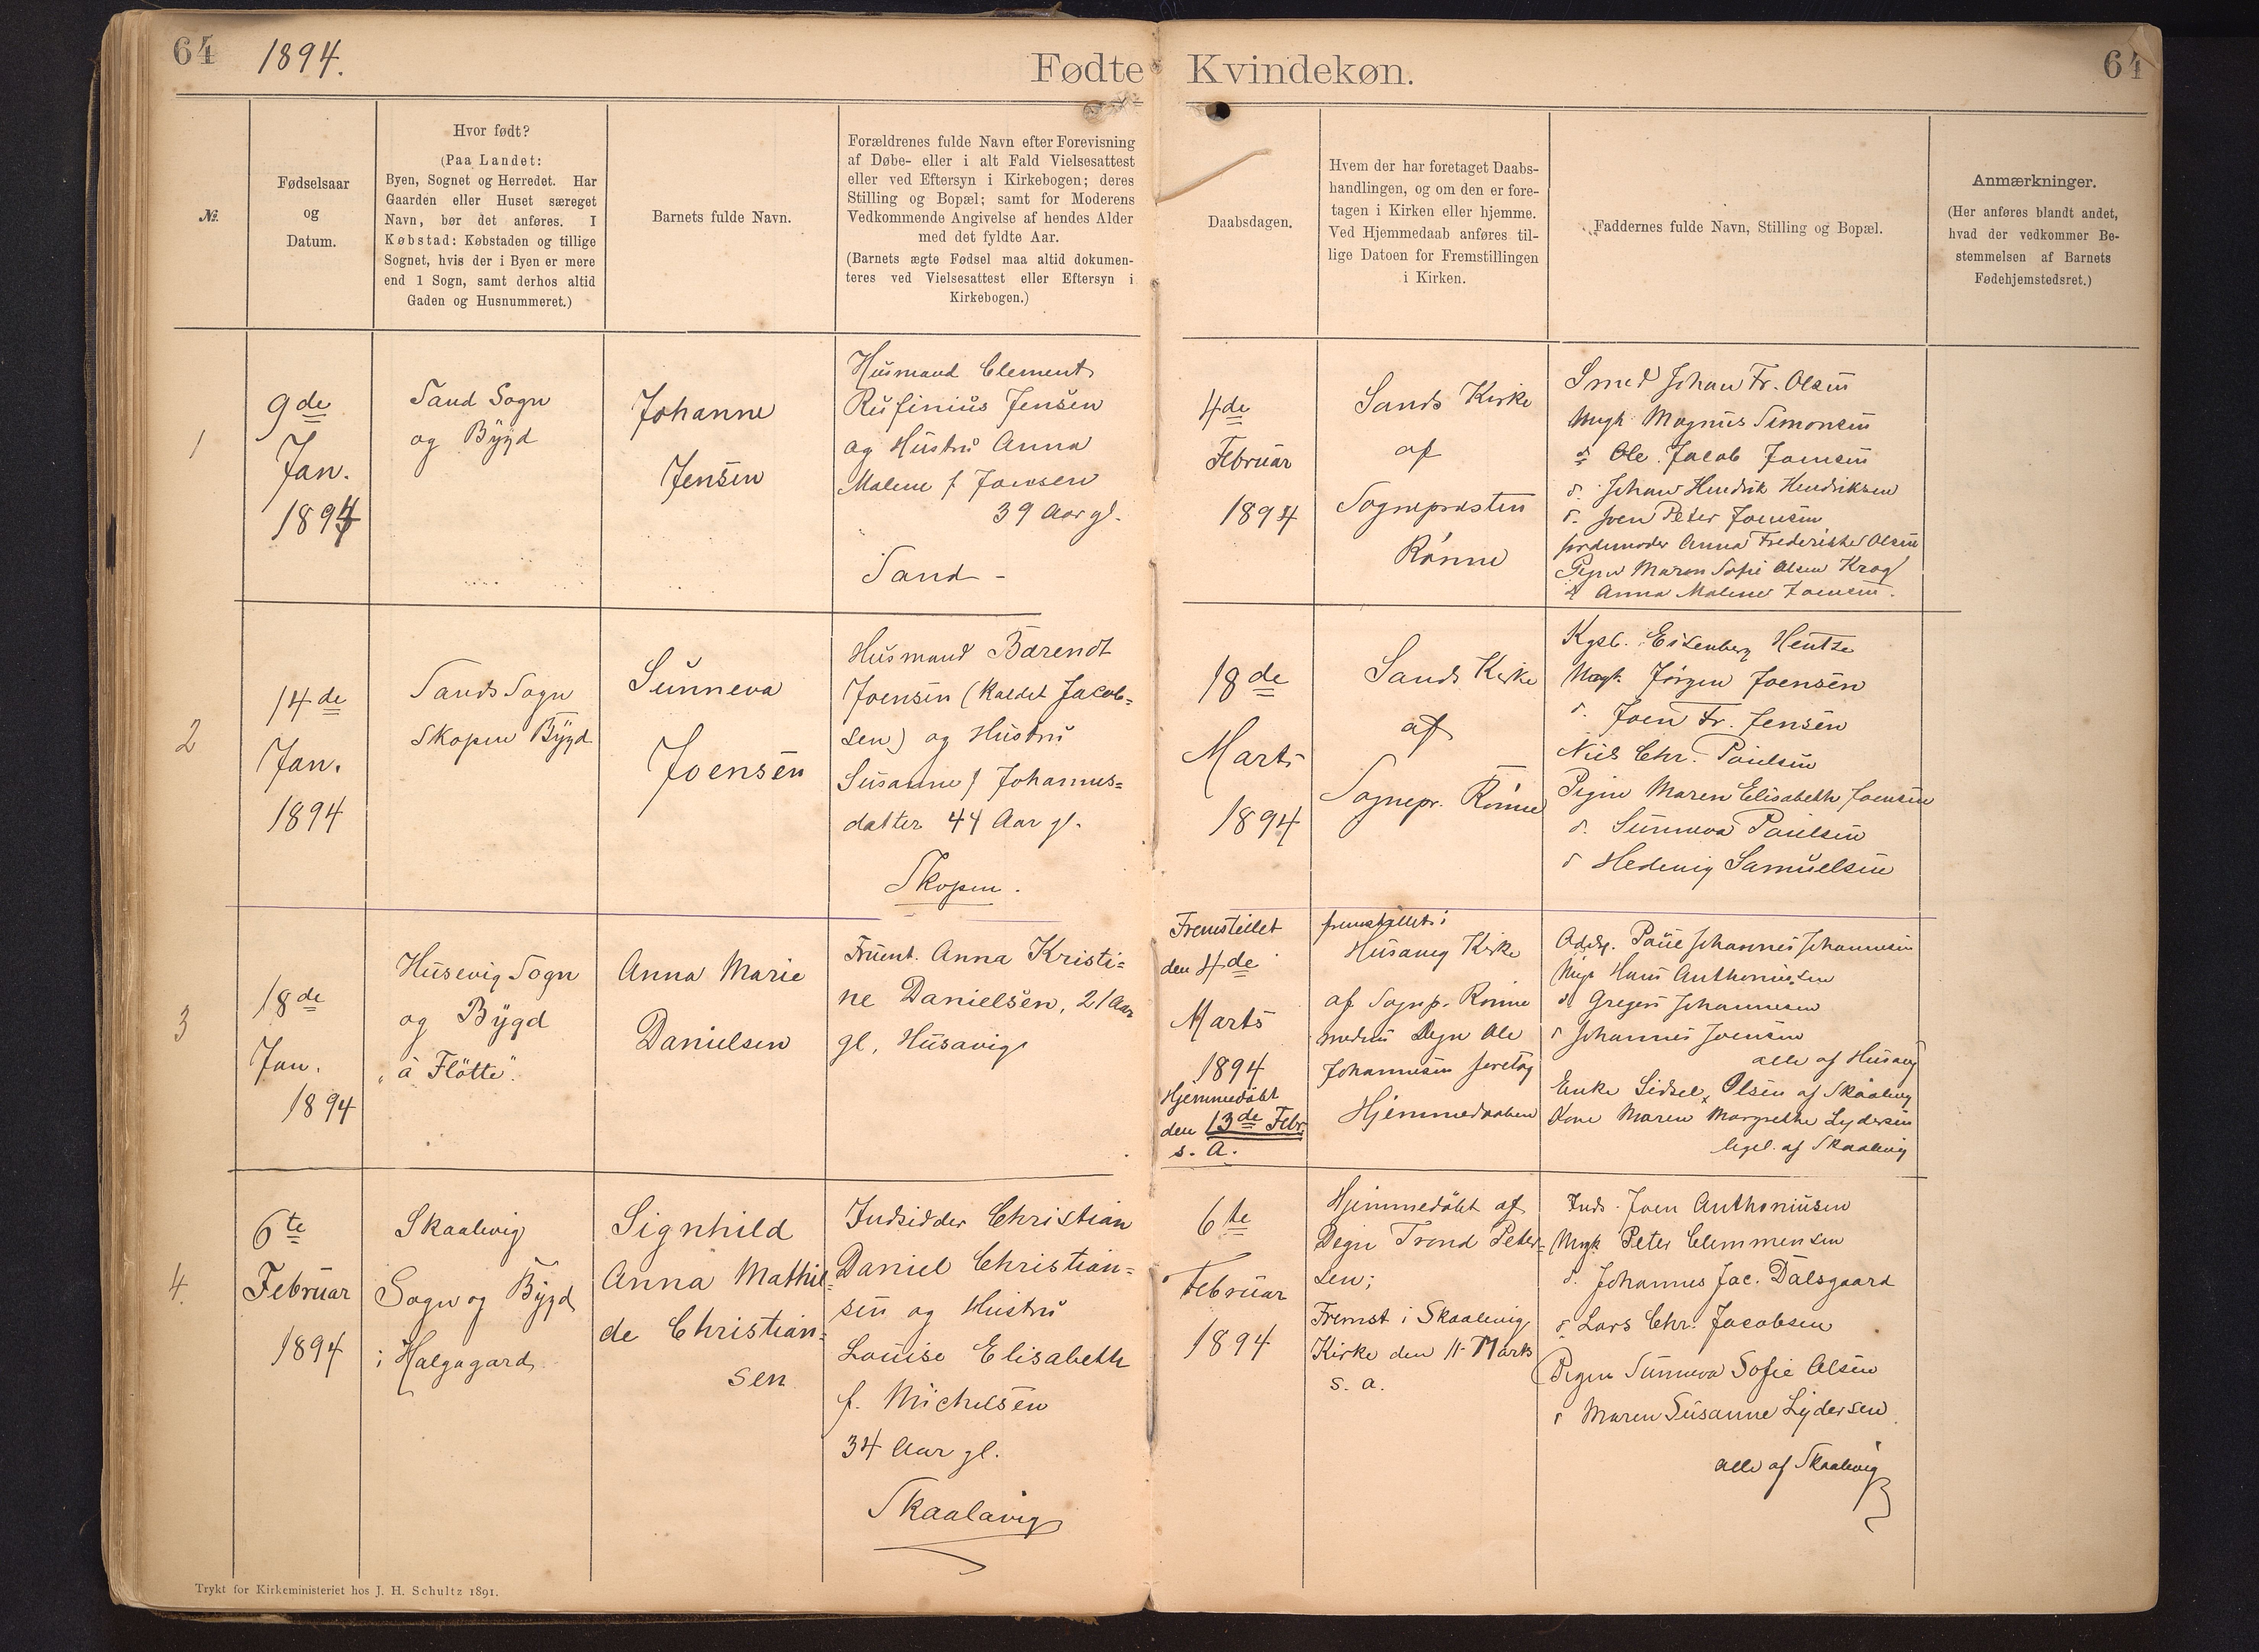 64 1894.
Fødte Kvindekøn.
64
№.
Fødselsaar
og
Datum.
Hvor født?
(Paa Landet:
Byen, Sognet og Herredet. Har
Gaarden eller Huset særeget
Navn, bør det anføres. I
Købstad: Købstaden og tillige
Sognet, hvis der i Byen er mere
end 1 Sogn, samt derhos altid
Gaden og Husnummeret.)
Barnets fulde Navn.
Forældrenes fulde Navn efter Forevisning
af Døbe- eller i alt Fald Vielsesattest
eller ved Eftersyn i Kirkebogen; deres
Stilling og Bopæl; samt for Moderens
Vedkommende Angivelse af hendes Alder
med det fyldte Aar.
(Barnets ægte Fødsel maa altid dokumen-
teres ved Vielsesattest eller Eftersyn i
Kirkebogen.)
Daabsdagen.
Hvem der har foretaget Daabs-
handlingen, og om den er fore-
tagen i Kirken eller hjemme.
Ved Hjemmedaab anføres til-
lige Datoen for Fremstillingen
i Kirken.
Faddernes fulde Navn, Stilling og Bopæl.
Anmærkninger.
(Her anføres blandt andet,
hvad der vedkommer Be-
stemmelsen af Barnets
Fødehjemstedsret.)
1
9de
Jan.
1894
Sand Sogn
og Bygd
Johanne
Jensen
Husmand Clement
Rufinius Jensen
og Hustru Anna
Malene f Joensen
39 Aar gl.
Sand -
4de
Februar
1894
Sands Kirke
af
Sognepræsten
Rønne
Smed Johan Fr. Olsen
Ungk Magnus Simonsen
d Ole Jacob Joensen
d. Johan Hendrik Hendriksen
d. Joen Peter Joensen
Jordemoder Anna Frederikke Olsen
Pigen Maren Sofie Olsen Krog
d Anna Malene Joensen.
2
14de
Jan.
1894
Sands Sogn
Skopen Bygd
Sunneva
Joensen
Husmand Barendt
Joensen (kaldet Jacob=
sen) og Hustru
Susanne f Johannes=
datter 44 Aar gl.
Skopen.
18de
Marts
1894
Sands Kirke
af
Sognepr. Rønne
Kgsb. Eisenberg Hentze
Ungk. Jørgen Joensen
d. Joen Fr. Jensen
Niels Chr. Poulsen
Pigen Maren Elisabeth Joensen
d. Sunneva Poulsen
d Hedevig Samuelsen
3
18de
Jan.
1894
Husevig Sogn
og Bygd
"à Fløtte".
Anna Marie
Danielsen
Fruent. Anna Kristi=
ne Danielsen, 21 Aar
gl, Husavig
Fremstillet
den 4de
Marts
1894
Hjemmedøbt
den 13de Febr.
s. A.
fremstillet i
Husavig Kirke
af Sognp. Rønne
medens Degn Ole
Johannesen foretog
Hjemmedaaben
Poul Johannes Johannesen
Ungk Hans Anthoniussen
d Gregers Johannesen
d Johannes Joensen
alle af Husavig
Enke Sidsel Olsen af Skaalevig
Kone Maren Margrethe Lydersen
ligel. af Skaalevig
4.
6te
Februar
1894
Skaalevig
Sogn og Bygd
i Halgagard
Signhild
Anna Mathil=
de Christian=
sen
Indsidder Christian
Daniel Christian=
sen og Hustru
Louise Elisabeth
f. Michelsen
34 Aar gl.
Skaalavig
6te
Februar
1894
Hjemmedøbt af
Degn Trond Peter=
sen;
Fremst i Skaalevig
Kirke den 11. Marts
s. a.
Inds. Joen Anthoniusen
Ungk Peter Clemmensen
d. Johannes Jac. Dalsgaard
d. Lars Chr. Jacobsen
Pigen Sunneva Sofie Olsen
d Maren Susanne Lydersen
alle af Skaalevig
Trykt for Kirkeministeriet hos J. H. Schultz 1891.